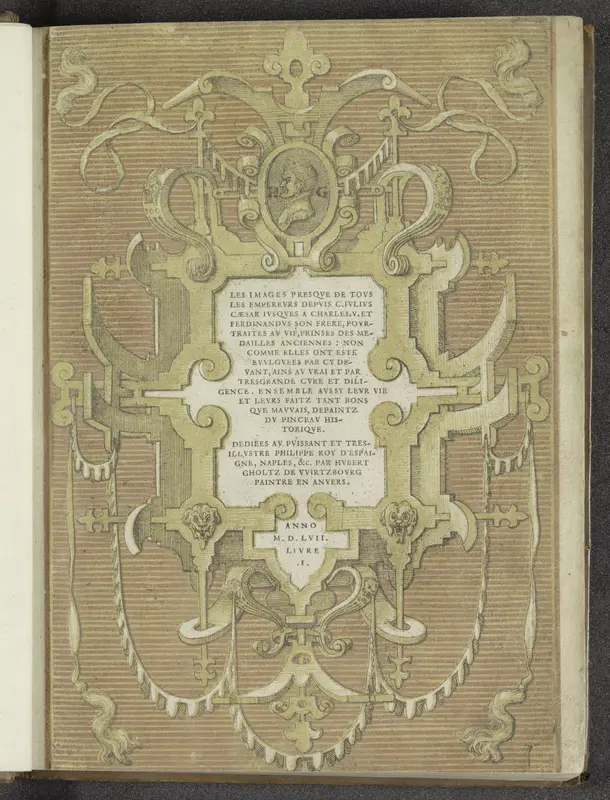 H G
LES IMAGES PRESQVE DE TOVS
LES EMPEREVRS DEPVIS C.IVLIVS
CÆSAR IVSQVES A CHARLES.V.ET
FERDINANDVS SON FRERE, POVR-
TRAITES AV VIF, PRINSES DES ME-
DAILLES ANCIENNES : NON
COMME ELLES ONT ESTÉ
BVVLGVEES PAR CY DE-
VANT, AINS AV VRAI ET PAR
TRESGRANDE CVRE ET DILI-
GENCE. ENSEMBLE AVSSY LEVR VIE
ET LEVRS FAITZ TANT BONS
QVE MAVVAIS, DEPAINTZ
DV PINCEAV HIS-
TORIQVE.
DEDIÉES AV PVISSANT ET TRES-
ILLVSTRE PHILIPPE ROY D'ESPAI-
GNE, NAPLES, &C. PAR HVBERT
GHOLTZ DE VVIRTZBOVRG
PAINTRE EN ANVERS.
ANNO
M.D.LVII.
LIVRE
.I.